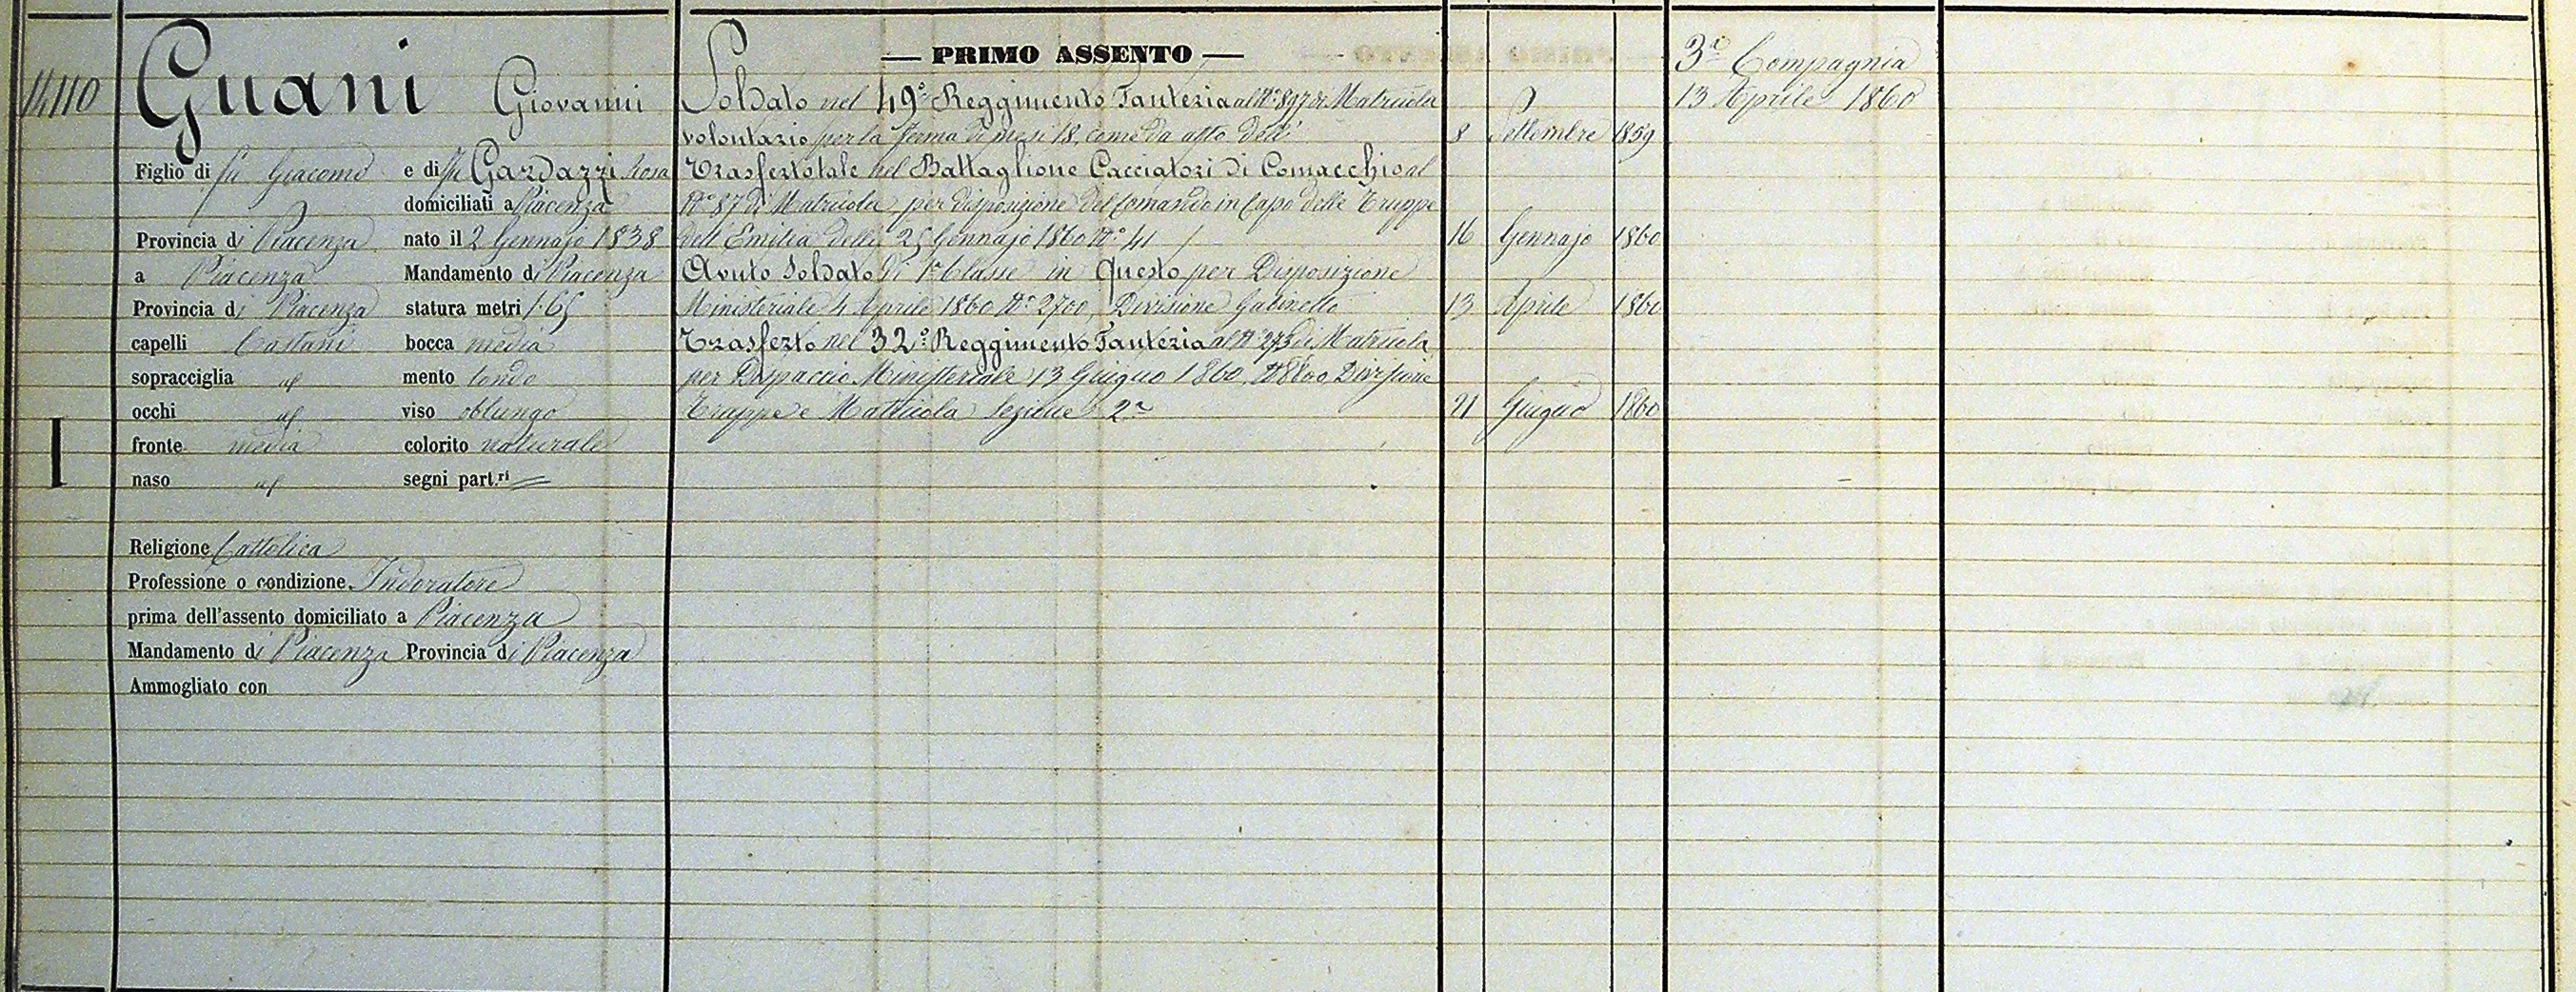 14110
Guani Giovanni
Figlio di fu Giacomo e di fu Gardazzi Rosa
domiciliati a Piacenza
Provincia di Piacenza nato il 2 Gennajo 1838
a Piacenza Mandamento di Piacenza
Provincia di Piacenza statura metri 1.65
capelli Castani bocca media
sopracciglia id mento tondo
occhi id viso oblungo
fronte media colorito naturale
naso id segni part.ri =
I
Religione Cattolica
Professione o condizione Indoratore
prima dell'assento domiciliato a Piacenza
Mandamento di Piacenza Provincia di Piacenza
Ammogliato con
— PRIMO ASSENTO —
Soldato nel 49º Reggimento Fanteria al Nº 897 di Matricola
volontario per la ferma di mesi 18, come da atto dell' 8 Settembre 1859
Trasferto tale nel Battaglione Cacciatori di Comacchio al
Nº 87 di Matricola, per disposizione del Comando in Capo delle Truppe
dell'Emilia delli 25 Gennajo 1860 Nº 41 16 Gennajo 1860
Avuto Soldato di 1ª Classe in Questo per Disposizione
Ministeriale 4 Aprile 1860 Nº 2700, Divisione Gabinetto 13 Aprile 1860
Trasferto nel 32º Reggimento Fanteria al Nº 273 di Matricola
per Dispaccio Ministeriale 13 Giugno 1860, Divisione
Truppe e Matricola Sezione 2ª 21 Giugno 1860
3ª Compagnia
13 Aprile 1860